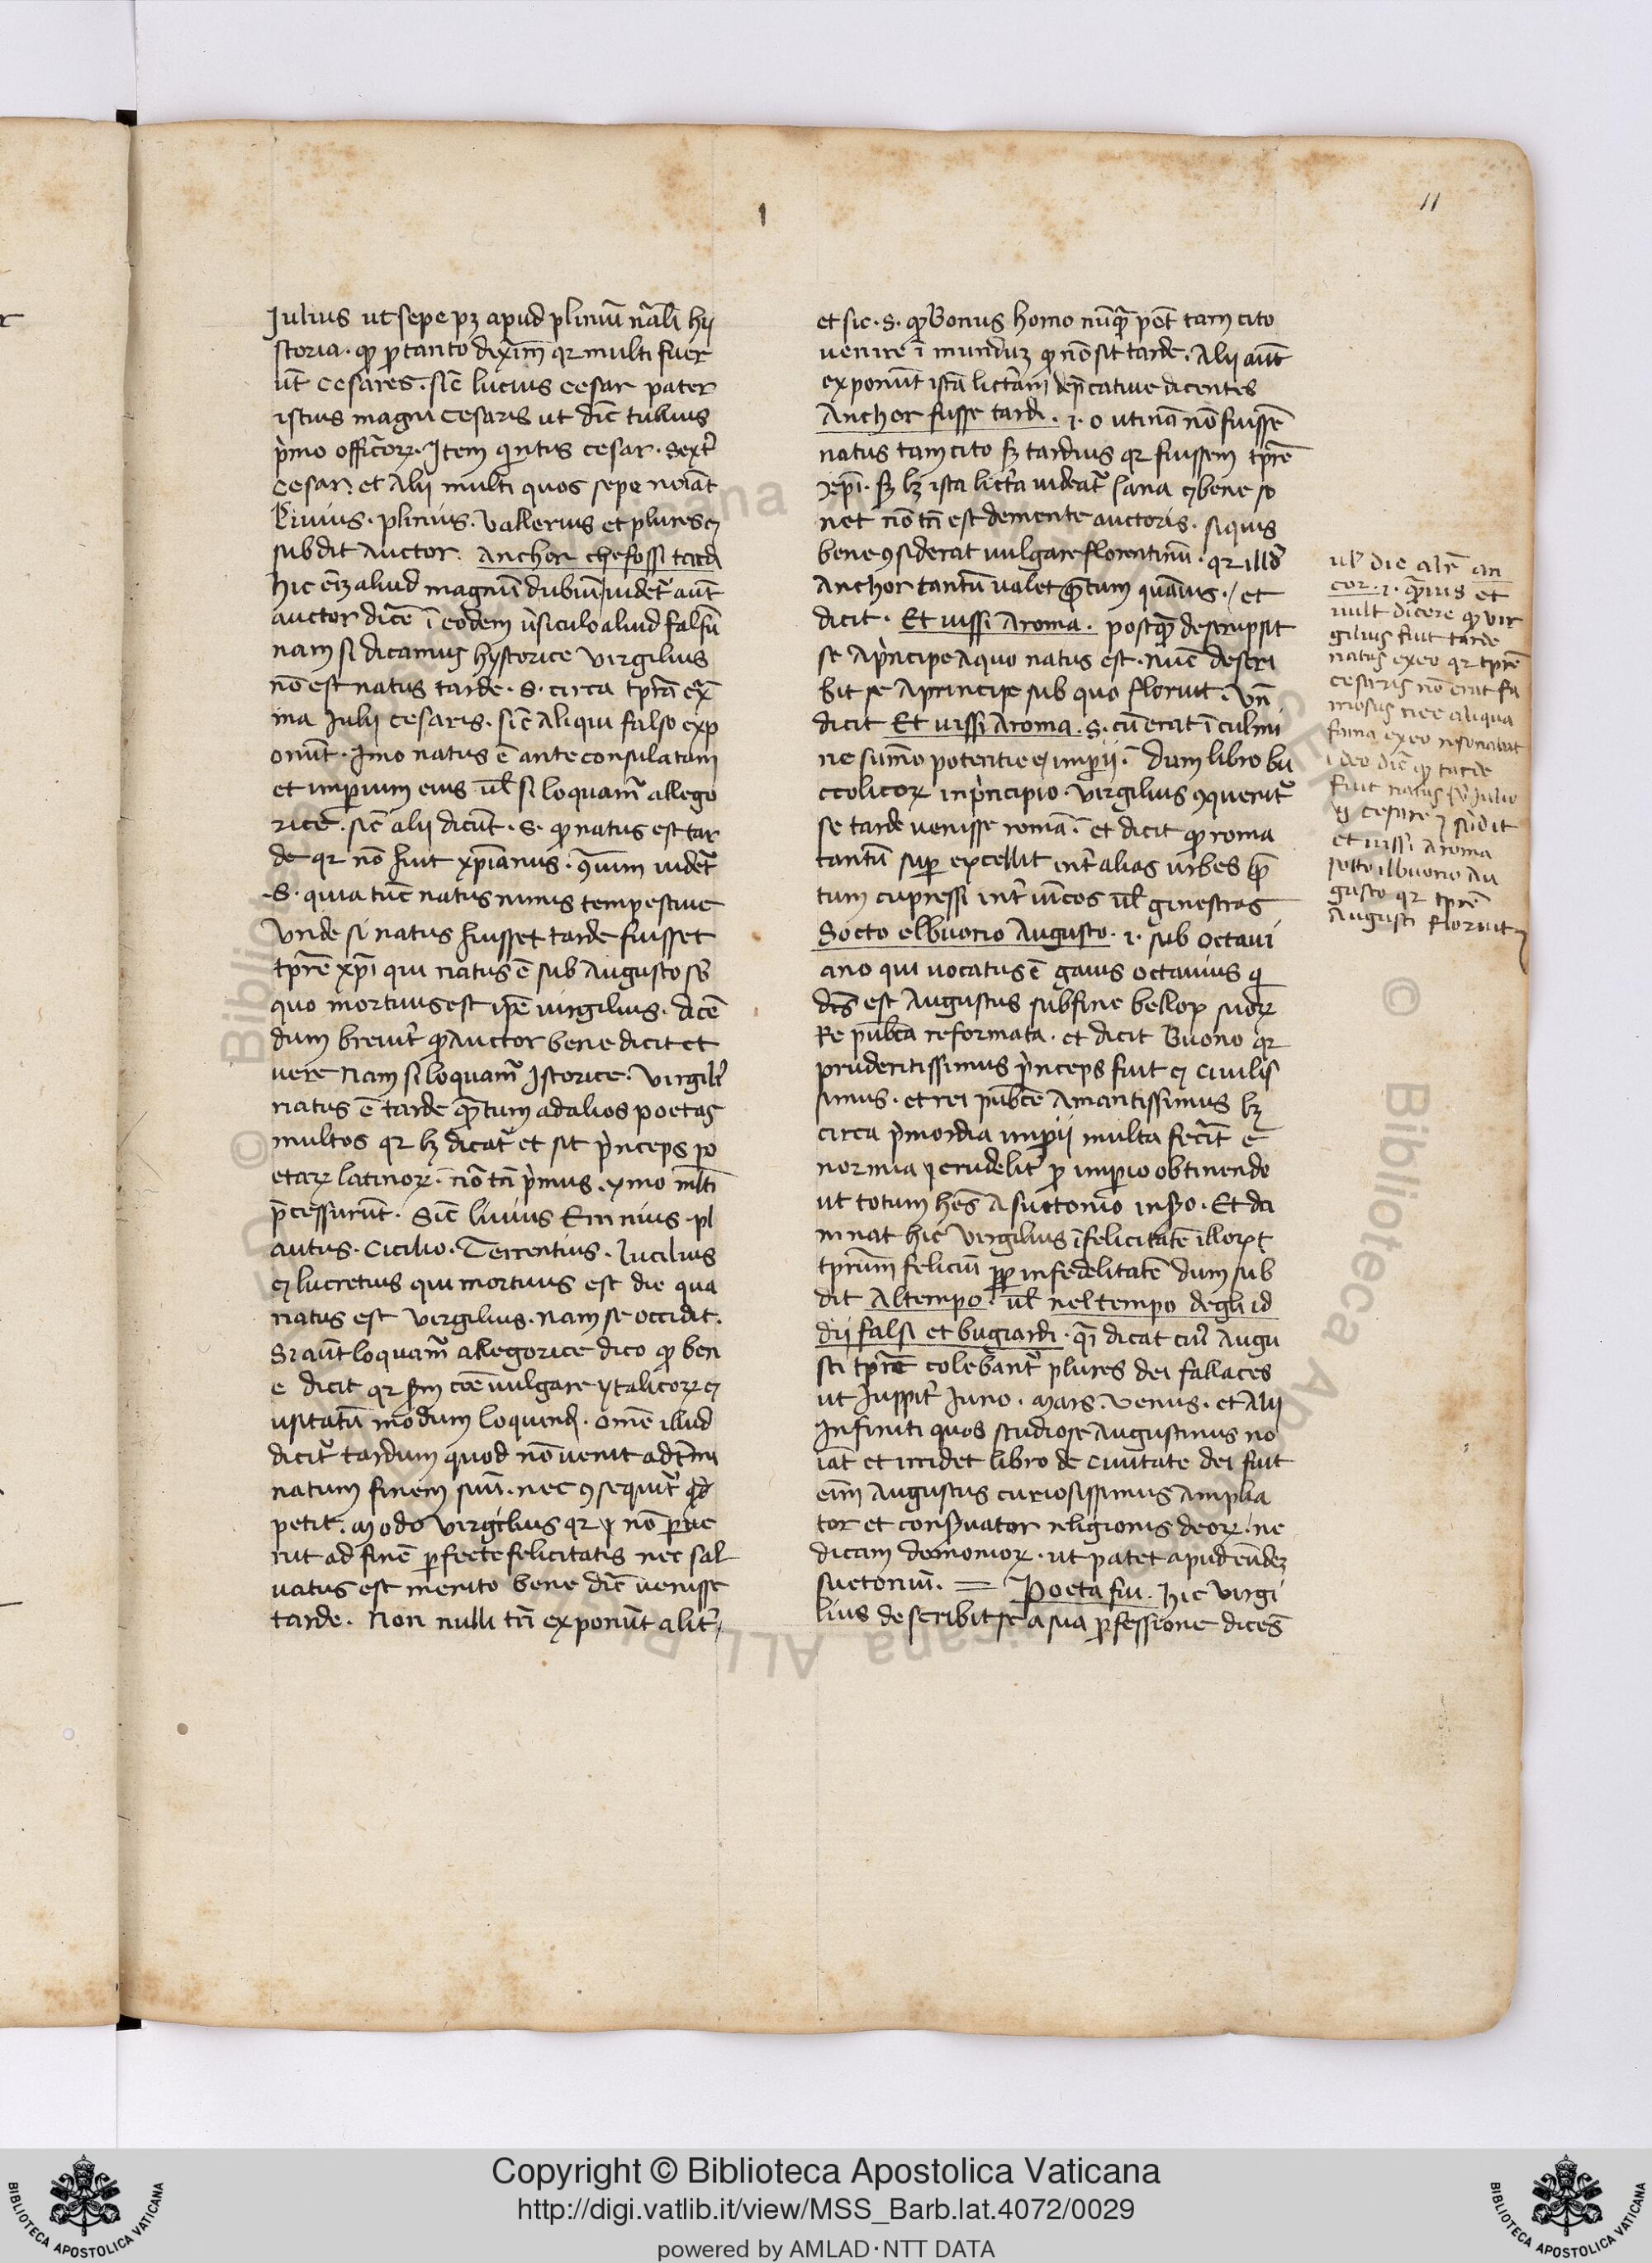 11
1
Julius ut sepe pꝫ apud pliniū nāli hy
storia · qꝙ ꝑ tanto dix̄im̄ qꝛ multi fuer
ūt cesares · sic̄ lucius cesar pater
istius magni cesaris ut dic̄ tullius
pͥmo offic̄orꝝ · Item qͥntus cesar · sext᷒
cesar · et alij multi quos sepe noīāt
Livius · plinius · Vallerius et plures ⁊
subdit auctor · anchor che fossi tardi
hic eīꝫ aliud magnū dubiū uidet᷑ aūt
auctor dicē ī eodem ūsiculo aliud falsū
nam si dicamus hystorice Virgilius
nō est natus tarde · s · circa tꝑra ext̄
ma Julij cesaris · sic̄ aliqui falso exp
onūt · Imo natus ē ante consulatum
et imꝑium eius ul̄ si loquam᷑ allego
rice · sic̄ alij dicūt · s · ꝙ natus est tar
de qꝛ nō fuit xp̄ianus · ꝯͣium uidet᷑
· s · quia tūc natus nimis tempestiue
Unde si natus fuisset tarde fuisset
tꝑre xp̄i qui natus ē sub Augusto sb̄
quo mortuus est ip̄e uirgilius · dicē
dum breuit᷑ ꝙ auctor bene dicit et
uere Nam si loquam᷑ Istorice · Virgili᷒
natus ē tarde quātum ad alios poetas
multos qꝛ lꝫ dicat᷑ et sit pͥnceps po
etarꝝ latinorꝝ · nō tn̄ pͥmus · ymo ml̄ti
p̄cesserunt · Sic̄ liuius Ennius · pl
autus · Cicilio · Terrentius · Lucilius
⁊ lucretius qui mortuus est die qua
natus est Virgilius · nam se occidit ·
Si aūt loquam᷑ allegorice dico ꝙ ben
e dicit qꝛ ẜm coē uulgare ytalicorꝝ ⁊
usitatū modum loquendi · omē illud
dicit᷑ tardum quod nō uenit ad t̄mi
natum finem suū · nec ꝯsequit᷑ qd̄
petit · modo Virgilius qꝛ nō ꝑue
nit ad finē ꝑfecte felicitatis nec sal
uatus est merito bene dic̄ uenisse
tarde · Non nulli tn̄ exponūt alit᷑
et sic · s · ꝙ bonus homo nūqͣ pōt tam cito
uenire ī mundum ꝙ nō sit tarde · Alij aūt
exponūt istā lictām dep̄catiue dicentes
Anchor fusse tardi · i · o utinā nō fuissē
natus tam cito sꝫ tardius qꝛ fuissem tꝑre
xp̄i · sꝫ lꝫ ista lict̄a uideat᷑ sana ⁊ bene so
net nō tn̄ est de mente auctoris · siquis
bene ꝯsiderat uulgare florentinū · qꝛ illd̄
Anchor tantū ualet quātum quāuis · et
dicit · Et uissi Aroma · postqͣ descripsit
se Apͥncipe A quo natus est · nūc descri
bit se Aprincipe sub quo floruit · Vn̄
dicit Et uissi Aroma · s · cū erat ī culmi
ne sūmo potentie ⁊ imꝑii · Dum libro bu
ccolicorꝝ in pͥncipio · Virgilius ꝯquerit᷑
se tarde uenisse romā · et dicit ꝙ roma
tantū suꝑ excellit int᷑ alias urbes qͣn
tum cupressi int᷑ uīcos ul̄ ginestras
Socto elbuono Augusto · i · sub Octaui
ano qui uocatus ē gaius octauius qͥ
dc̄s est Augustus sub fine bellorꝝ suorꝝ
Re publica reformata · et dicit Buono qꝛ
prudentissimus pͥnceps fuit ⁊ ciuilis
simus · et rei publice Amantissimus lꝫ
circa pͥmordia imꝑii multa fecit̄ e
normia ⁊ crudelit᷑ ꝓ imꝑio obtinendo
ut totum hēs A suetonio in pͦ · Et da
mnat hic Virgilius īfelicitatē illorꝝ
tꝑrum feliciū ꝓpt᷑ infedelitatē dum sub
dit Altempo · ul̄ nel tempo degli id
dii falsi et bugiardi · qͣ dicat cui᷒ Augu
sti tꝑre colebant᷑ plures dei fallaces
ut Iuppit᷑ Iuno · Mars · Venus · et Alij
Infiniti quos studiose Augustinus no
iāt et irridet libro de ciuitate dei fuit
eīm Augustus curiosissimus Amplia
tor et conseruator religionis deorꝝ · ne
dicam demoniorꝝ · ut patet apud eūdeꝫ
suetoniū · = Poeta fui · hic Virgi
lius describit se a sua ꝓfessione dicēs
ul̄ dic alr̄ an
cor · i · quāuis et
uult dicere ꝙ vir
gilius fuit tarde
natus ex eo qꝛ tꝑre
cesaris nō erat fa
mosus nec aliqua
fama ex eo resonabat
ideo dic̄ ꝙ tarde
fuit natus sb̄ Julio
cesare ⁊ subdit
et uissi Aroma
sotto il buono Au
gusto qꝛ tꝑre
Augusti floruit
Copyright © Biblioteca Apostolica Vaticana
http://digi.vatlib.it/view/MSS_Barb.lat.4072/0029
powered by AMLAD·NTT DATA
BIBLIOTECA APOSTOLICA VATICANA
BIBLIOTECA APOSTOLICA VATICANA